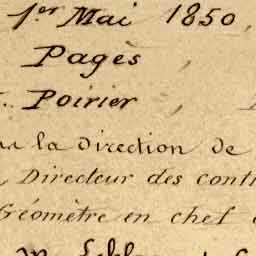 1er Mai 1850,
Pagès,
Poirier,
la direction de
Directeur des cont
Géomètre en chef